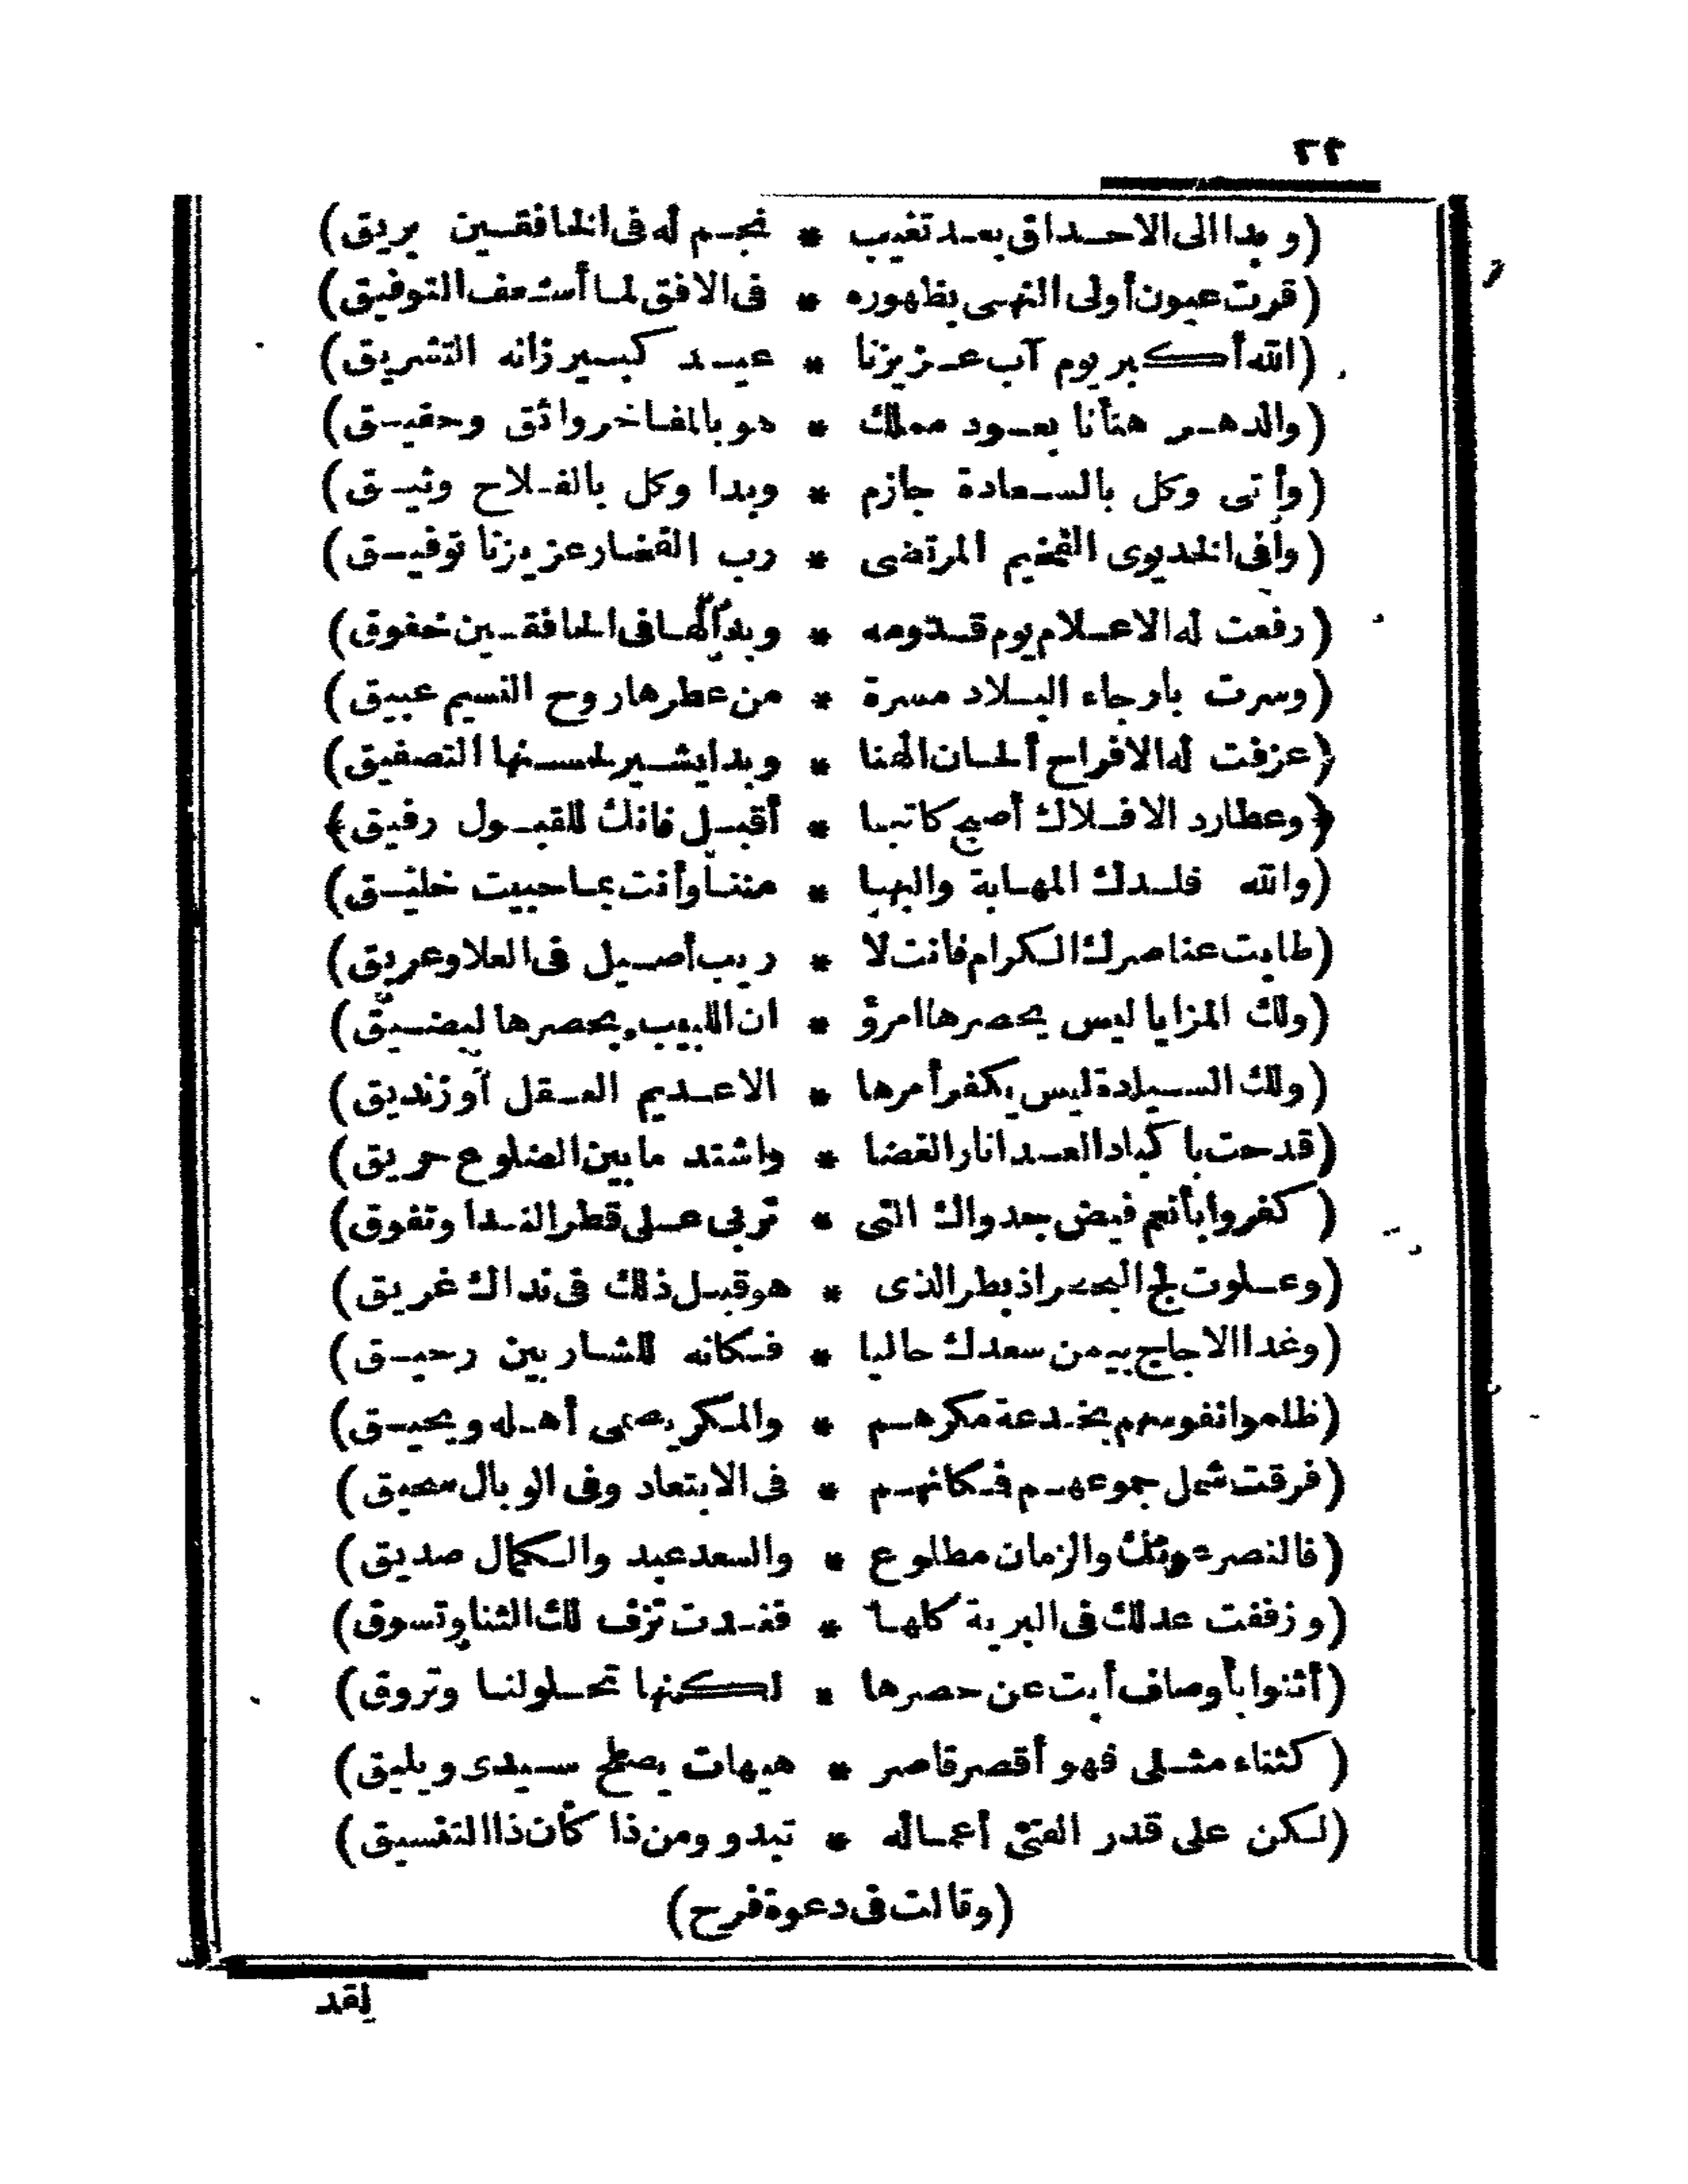 ٢٢
(وبدا الى الاحداق بعد تغيب * نجم له فى الخافقين بريق)
(قرت عيون أولى النهى بظهوره * فى الافق لما أسعف التوفيق)
(الله أكبر يوم آب عزيزنا * عيد كبير زانه التشريق)
(والدهر هنأنا بعود مملك * هو بالمفاخر واثق وحقيق)
(وأتى وكل بالسعادة جازم * وبدا وكل بالفلاح وثيق)
(وافى الخديوى الفخيم المرتضى * رب الفخار عزيزنا توفيق)
(رفعت له الاعلام يوم قدومه * وبدا لها فى الخافقين خفوق)
(وسرت بارجاء البلاد مسرة * من عطرها روح النسيم عبيق)
(عزفت له الافراح ألحان الهنا * وبدا يشير لحسنها التصفيق)
(وعطارد الافلاك أصبح كاتبا * أقبل فانك للقبول رفيق)
(والله قلدك المهابة والبها * مننا وأنت بما حبيت خليق)
(طابت عناصرك الكرام فانت لا * ريب أصيل فى العلا وعريق)
(ولك المزايا ليس يحصرها امرؤ * ان اللبيب بحصرها ليضيق)
(ولك السيادة ليس يكفر أمرها * الا عديم العقل أو زنديق)
(قدحت با كباد العدا نار الغضا * واشتد ما بين الضلوع حريق)
(كفروا بأنعم فيض جدواك التى * تربى على قطر الندا وتفوق)
(وعلوت لج البحر اذ بطر الذى * هو قبل ذلك فى نداك غريق)
(وغدا الاجاج بيمن سعدك حاليا * فكانه للشاربين رحيق)
(ظلموا نفوسهم بخدعة مكرهم * والمكر يصمى أهله ويحيق)
(فرقت شمل جموعهم فكانهم * فى الابتعاد وفى الوبال سحيق)
(فالنصر عونك والزمان مطلوع * والسعد عبد والكمال صديق)
(وزففت عدلك فى البرية كلها * فغدت تزف لك الثنا وتسوق)
(أثنوا بأوصاف أبت عن حصرها * لكنها تحلو لنا وتروق)
(كثناء مثلى فهو أقصر قاصر * هيهات يصلح سيدى ويليق)
(لكن على قدر الفتى أعماله * تبدو ومن ذا كان ذا التفسيق)
(وقالت فى دعوة فرح)
لقد